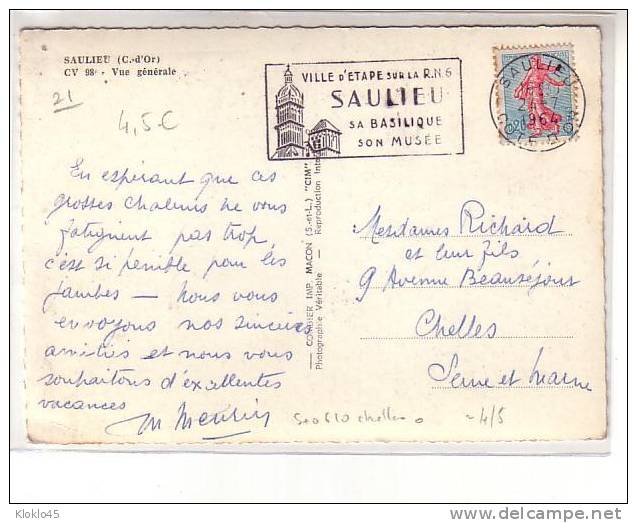 SAULIEU (C.-d'Or)
CV 98 - Vue générale
21
4,5€
VILLE D'ETAPE SUR LA R.N.6
SAULIEU
SA BASILIQUE
SON MUSÉE
SAULIEU
1964
CÔTE D'OR
0,20
En espérant que ces
grosses chaleurs ne vous
fatiguent pas trop,
c'est si pénible pour les
jambes — Nous vous
envoyons nos sincères
amitiés et nous vous
souhaitons d'excellentes
vacances
— COMBIER IMP. MACON (S.-et-L.) "CIM"
Photographie Véritable — Reproduction Inter
Mesdames Richard
et leur fils
9 Avenue Beauséjour
Chelles
Seine et Marne
chelles
4/5
Kloklo45
www.delcampe.net